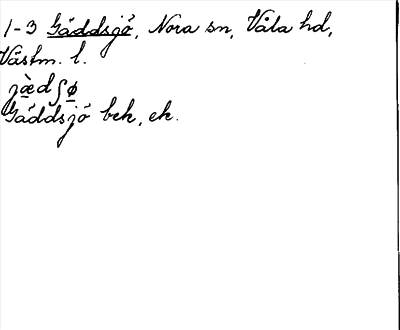 1-3 Gäddsjö, Nora sn, Våla hd,
Västm. l.
jæ̀dʃø
Gäddsjö bek, ek.